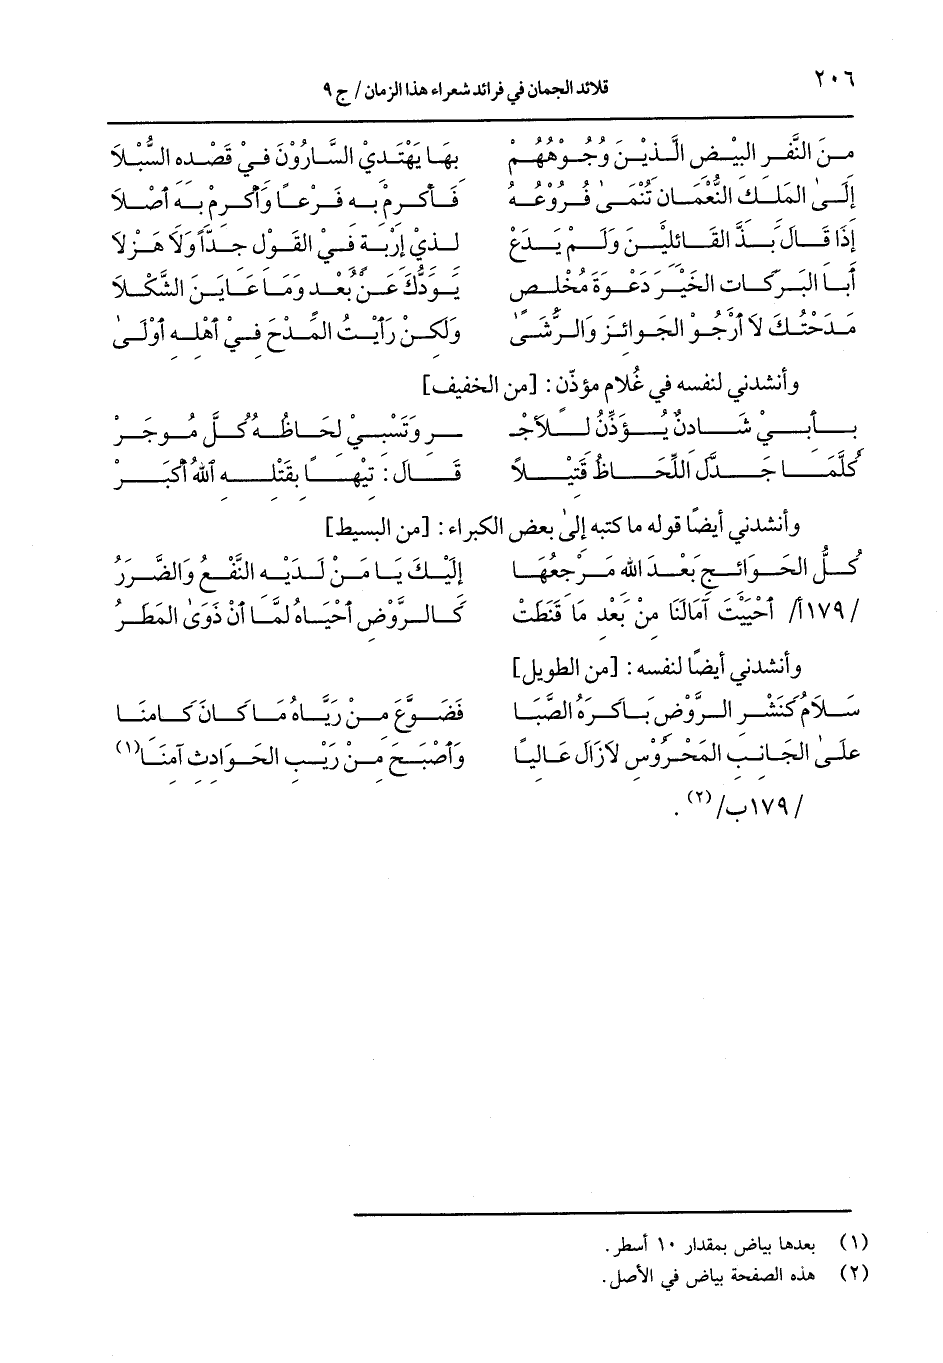 ٢٠٦
قلائد الجمان في فرائد شعراء هذا الزمان / ج ٩
مِنَ النَّفَرِ البيْضِ الَّذِيْنَ وُجُوهُهُمْ بِهَا يَهْتَدِيْ السَّارُوْنَ فِيْ قَصْدِهِ السُّبْلَا
إِلَىٰ المَلِكِ النُّعْمَانِ تُنْمَىٰ فُرُوْعُهُ فَأَكْرِمْ بِهِ فَرْعًا وَأَكْرِمْ بِهِ أَصْلَا
إِذَا قَالَ بَذَّ القَائِليْنَ وَلَمْ يَدَعْ لِذِيْ إِرْبَةٍ فِيْ القَوْلِ جِدّاً وَلَا هَزْلَا
أَبَا البَرَكَاتِ الخَيْرَ دَعْوَةَ مُخْلِصٍ يَوَدُّكَ عَنْ بُعْدٍ وَمَا عَايَنَ الشَّكْلَا
مَدَحْتُكَ لَا أَرْجُوْ الجَوائِزَ وَالرُّشَىٰ وَلَكِنْ رَأَيْتُ المَدْحَ فِيْ أَهْلِهِ أَوْلَىٰ
وأنشدني لنفسه في غُلام مؤذّن: [من الخفيف]
بِأَبِيْ شَادِنٌ يُؤَذِّنُ لِلْأَجْـ ـرِ وَتَسْبِيْ لِحَاظُهُ كُلَّ مُوجَرْ
كُلَّمَا جَدَّلَ اللِّحَاظُ قَتِيْلاً قَالَ: تِيْهًا بِقَتْلِهِ اَللهُ أَكْبَرْ
وأنشدني أيضًا قوله ما كتبه إلىٰ بعض الكبراء: [من البسيط]
كُلُّ الحَوائِجِ بَعْدَ اللهِ مَرْجِعُهَا إِلَيْكَ يَا مَنْ لَدَيْهِ النَّفْعُ وَالضَّرَرُ
/١٧٩أ/ أَحْيَيْتَ آمَالَنَا مِنْ بَعْدِ مَا قَنَطَتْ كَالرَّوْضِ أَحْيَاهُ لَمَّا أَنْ ذَوَىٰ المَطَرُ
وأنشدني أيضًا لنفسه: [من الطويل]
سَلَامٌ كَنَشْرِ الرَّوْضِ بَاكَرَهُ الصَّبَا فَضَوَّعَ مِنْ رَيَّاهُ مَا كَانَ كَامِنَا
عَلَىٰ الجَانِبِ المَحْرُوْسِ لَازَالَ عَالِيًا وَأَصْبَحَ مِنْ رَيْبِ الحَوَادِثِ آمِنَا(١)
/١٧٩ب/(٢).
(١) بعدها بياض بمقدار ١٠ أسطر.
(٢) هذه الصفحة بياض في الأصل.